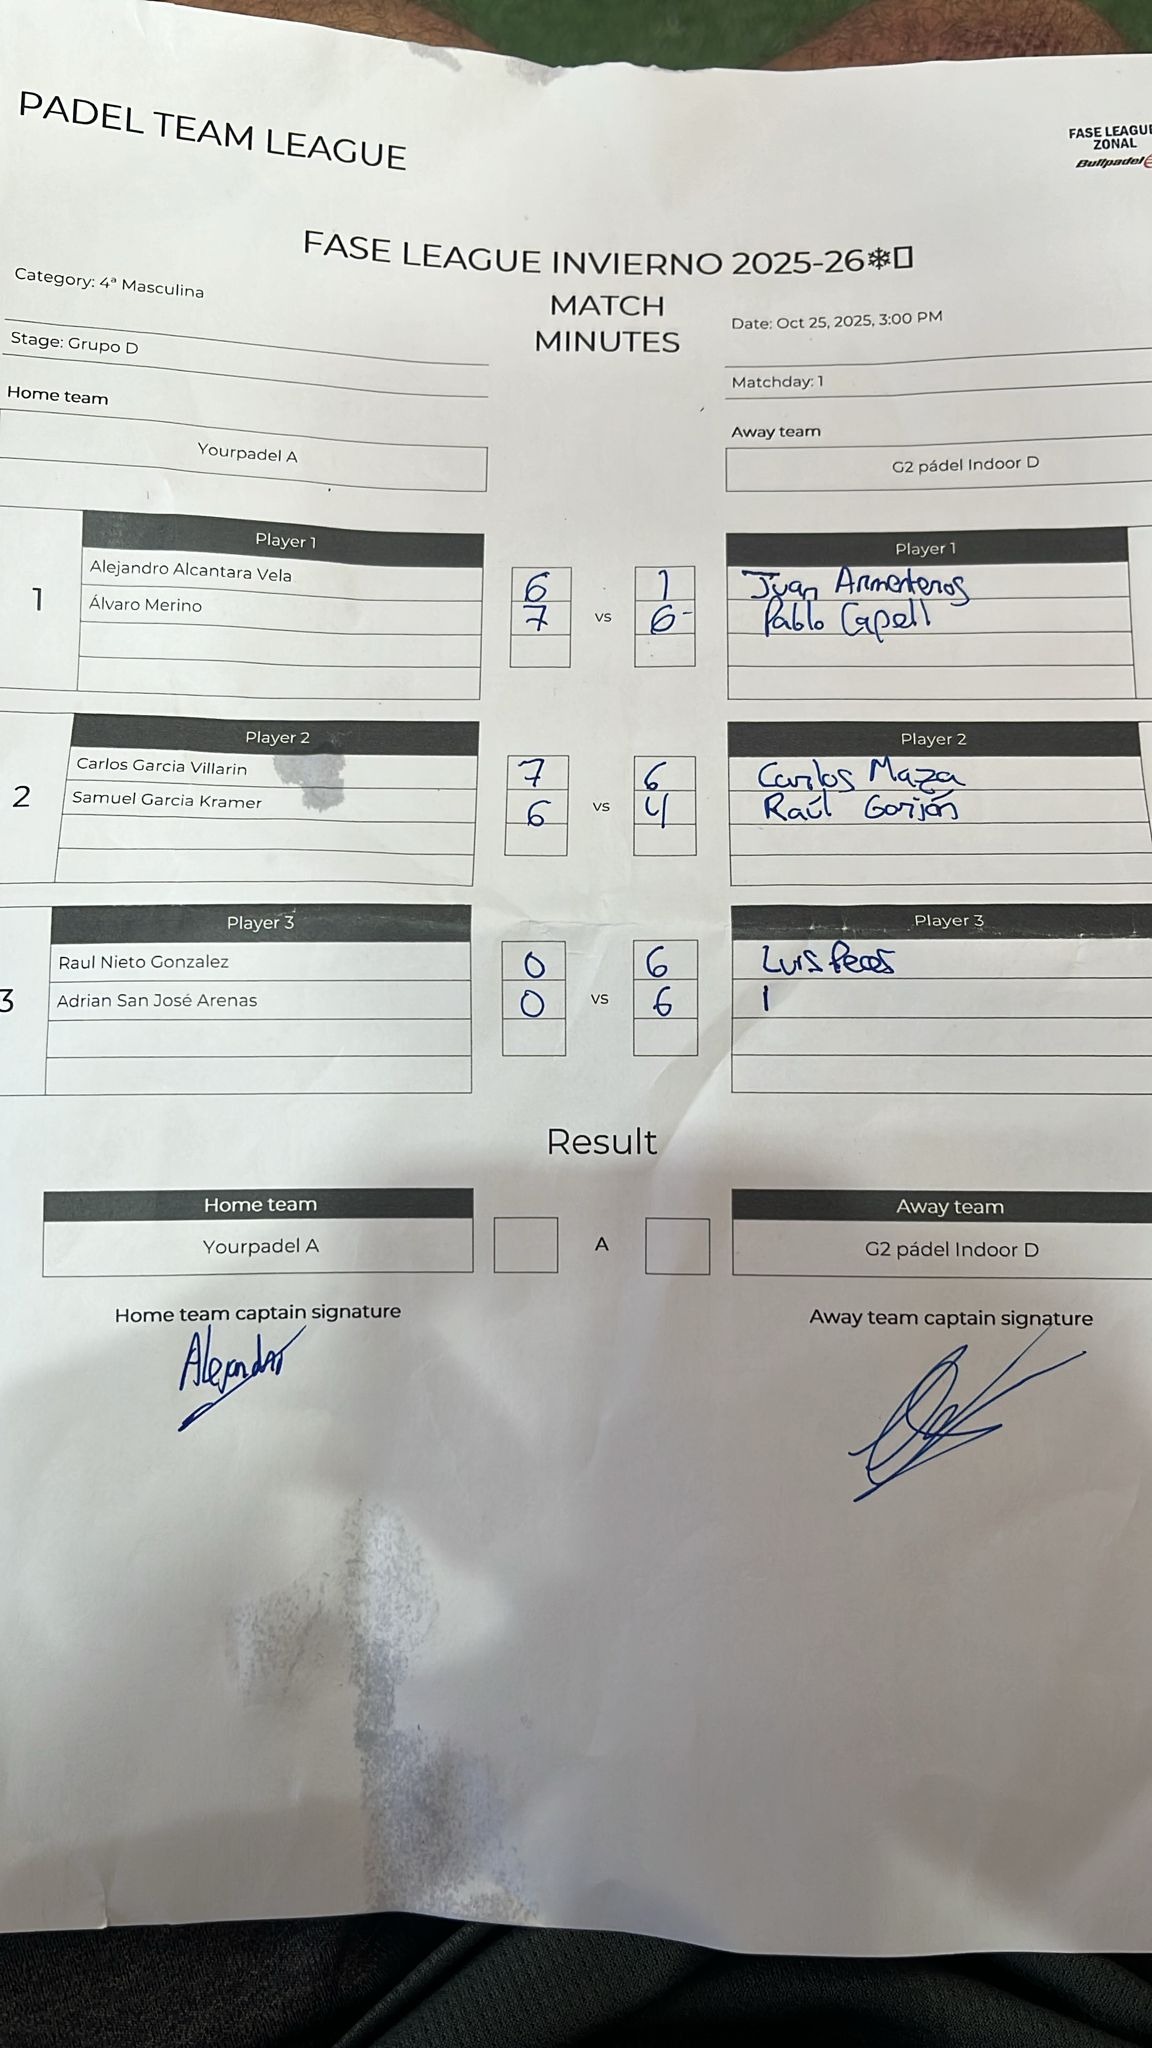 PADEL TEAM LEAGUE
FASE LEAGUE
ZONAL
Bullpadel
FASE LEAGUE INVIERNO 2025-26❄
Category: 4ª Masculina
MATCH
MINUTES
Date: Oct 25, 2025, 3:00 PM
Stage: Grupo D
Matchday: 1
Home team
Away team
Yourpadel A
G2 pádel Indoor D
Player 1
Player 1
1
Alejandro Alcantara Vela
6
1
Juan Armenteros
Álvaro Merino
7
vs
6
Pablo Capell
Player 2
Player 2
2
Carlos Garcia Villarin
7
6
Carlos Maza
Samuel Garcia Kramer
6
vs
4
Raúl Gorijón
Player 3
Player 3
3
Raul Nieto Gonzalez
0
6
Luis
Adrian San José Arenas
0
vs
6
Result
Home team
Away team
Yourpadel A
A
G2 pádel Indoor D
Home team captain signature
Away team captain signature